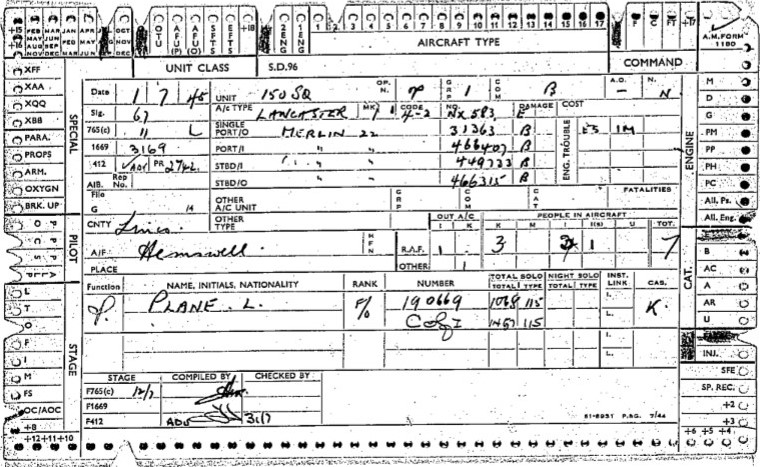 +15 FEB MAR JAN APR OCT
MAY JUN MAY JUL NOV
+16 AUG SEP DEC
NOV DEC MAR JUN DEC
OTU AFU (P) AFU (O) SFTS EFTS +18 2 ENG 1 ENG 1 2 3 4 5 6 7 8 9 10 11 12 13 14 15 16 17 F FT +17
AIRCRAFT TYPE
A.M. FORM 1180
XFF UNIT CLASS S.D.96 COMMAND
XAA Date 1 7 45 UNIT 150 SQ OP. N. GRP 1 COM B A.D. — N. N M
XQQ Sig. 67 A/C TYPE LANCASTER MK 1 CODE NO. NX 583 DAMAGE E COST D
XBB 765(c) 11 L SINGLE PORT/O MERLIN 22 31363 B ENG. TROUBLE G
PARA. 1669 3169 PORT/I " " 466407 B PM
PROPS 412 PR STBD/I " " B PP
ARM. AIB. Rep No. STBD/O 466315 B PH
OXYGEN File OTHER A/C UNIT GRP COM CAT FATALITIES PC
BRK. UP G 14 All. Ps.
SPECIAL ENGINE
CNTY Lincs. OTHER TYPE OUT A/C PEOPLE IN AIRCRAFT All. Eng.
I K K M I I(s) U TOT.
A/F Hemswell. HFN R.A.F. 1 3 1 7 B
PLACE OTHER 1 AC
PILOT CAT.
Function NAME, INITIALS, NATIONALITY RANK NUMBER TOTAL SOLO NIGHT SOLO INST. LINK CAS. A
TOTAL TYPE TOTAL TYPE
P. PLANE. L. F/O 190669 1068 115 I. K. AR
1467 115 L. U
I.
L. INJ.
STAGE
STAGE COMPILED BY CHECKED BY SFE
F765(c) 12/7 SP. REC.
F1669 +2
F412 31/7 51-8951 7/44 +3
L
T
O
F
I
M
FS
OC/AOC
+8
+12 +11 +10 +6 +5 +4